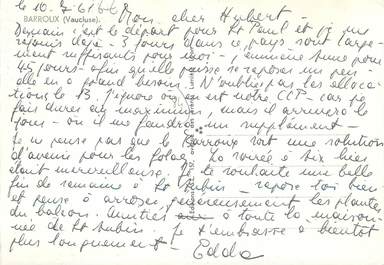 le 10.7.
BARROUX (Vaucluse) Mon cher Hubert -
Demain c'est le départ pour St Paul et je me
réjouis déjà - 3 jours dans ce pays sont large-
ment suffisants pour moi - j'emmène pour
45 jours - afin qu'elle puisse se reposer un peu -
elle en a grand besoin. N'oublie pas les alloca-
tions le 13. J'ignore où en est notre CCP - car je
fais durer au maximum, mais il arrivera le
jour - où il me faudra un supplément -
Je ne pense pas que le Barroux soit une solution
d'avenir pour les
étant merveilleuse. Je te souhaite une belle
fin de semaine à St Aubin - repose toi bien
et pense à arroser généreusement les plantes
du balcon. Amitiés à toute la maison-
née de St Aubin. Je t'embrasse à bientôt
plus longuement - Edda